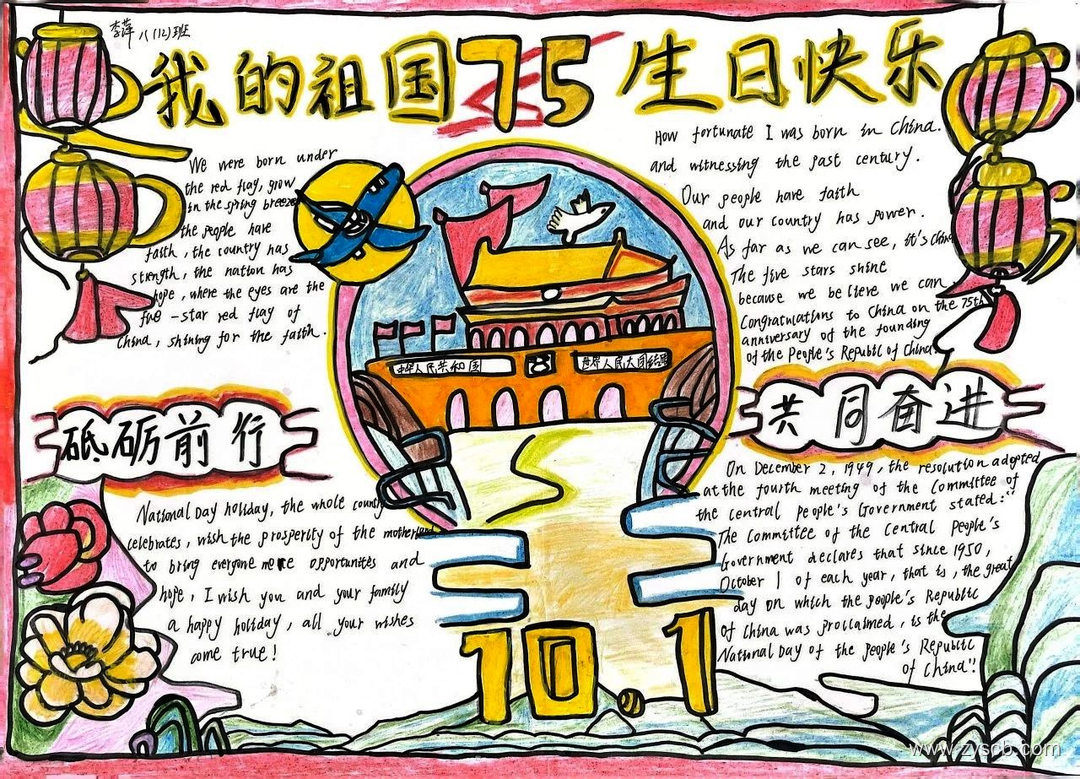 李萍 八(12)班
我的祖国75生日快乐
We were born under
the red flag, grow
in the spring breeze
the people have
faith, the country has
strength, the nation has
hope, where the eyes are the
five-star red flag of
China, shining for the faith.
How fortunate I was born in China.
and witnessing the past century.
Our people have faith
and our country has power.
As far as we can see, it's China
The five stars shine
because we believe we can
Congratulations to China on the 75th
anniversary of the founding
of the People's Republic of China.
中华人民共和国
世界人民大团结
砥砺前行
National Day holiday, the whole country
celebrates, wish the prosperity of the motherland
to bring everyone more opportunites and
hope, I wish you and your family
a happy holiday, all your wishes
come true!
共同奋进
On December 2, 1949, the resolution adopted
at the fourth meeting of the Committee of
the Central People's Government stated:"
The Committee of the Central People's
Government declares that since 1950,
October 1 of each year, that is, the great
day on which the people's Republic
of China was proclaimed, is the
National Day of the people's Republic
of China"!
10.1
www.zyscb.com